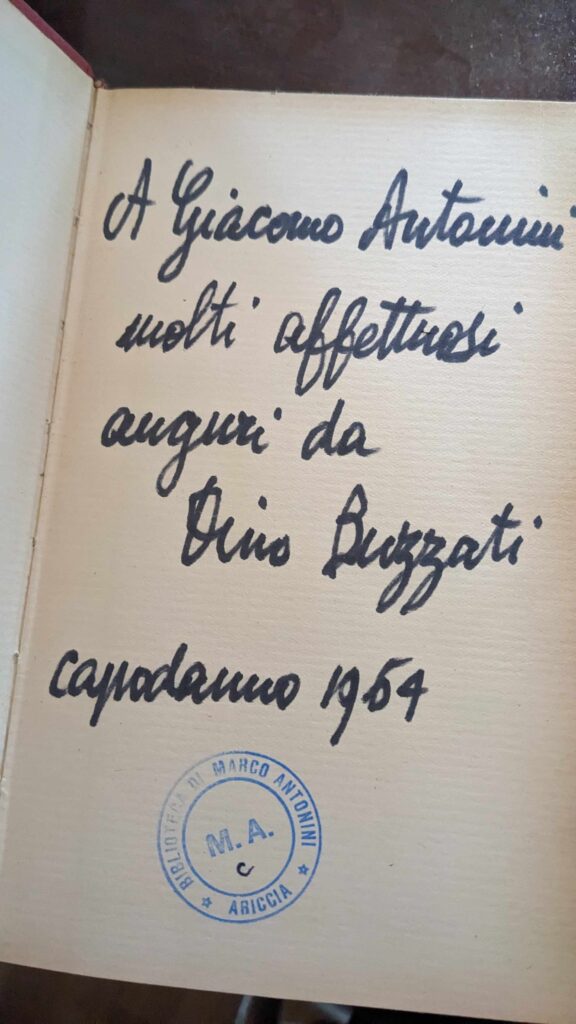 A Giacomo Antonini
molti affettuosi
auguri da
Dino Buzzati
capodanno 1964
BIBLIOTECA DI MARCO ANTONINI
M. A.
★ ARICCIA ★